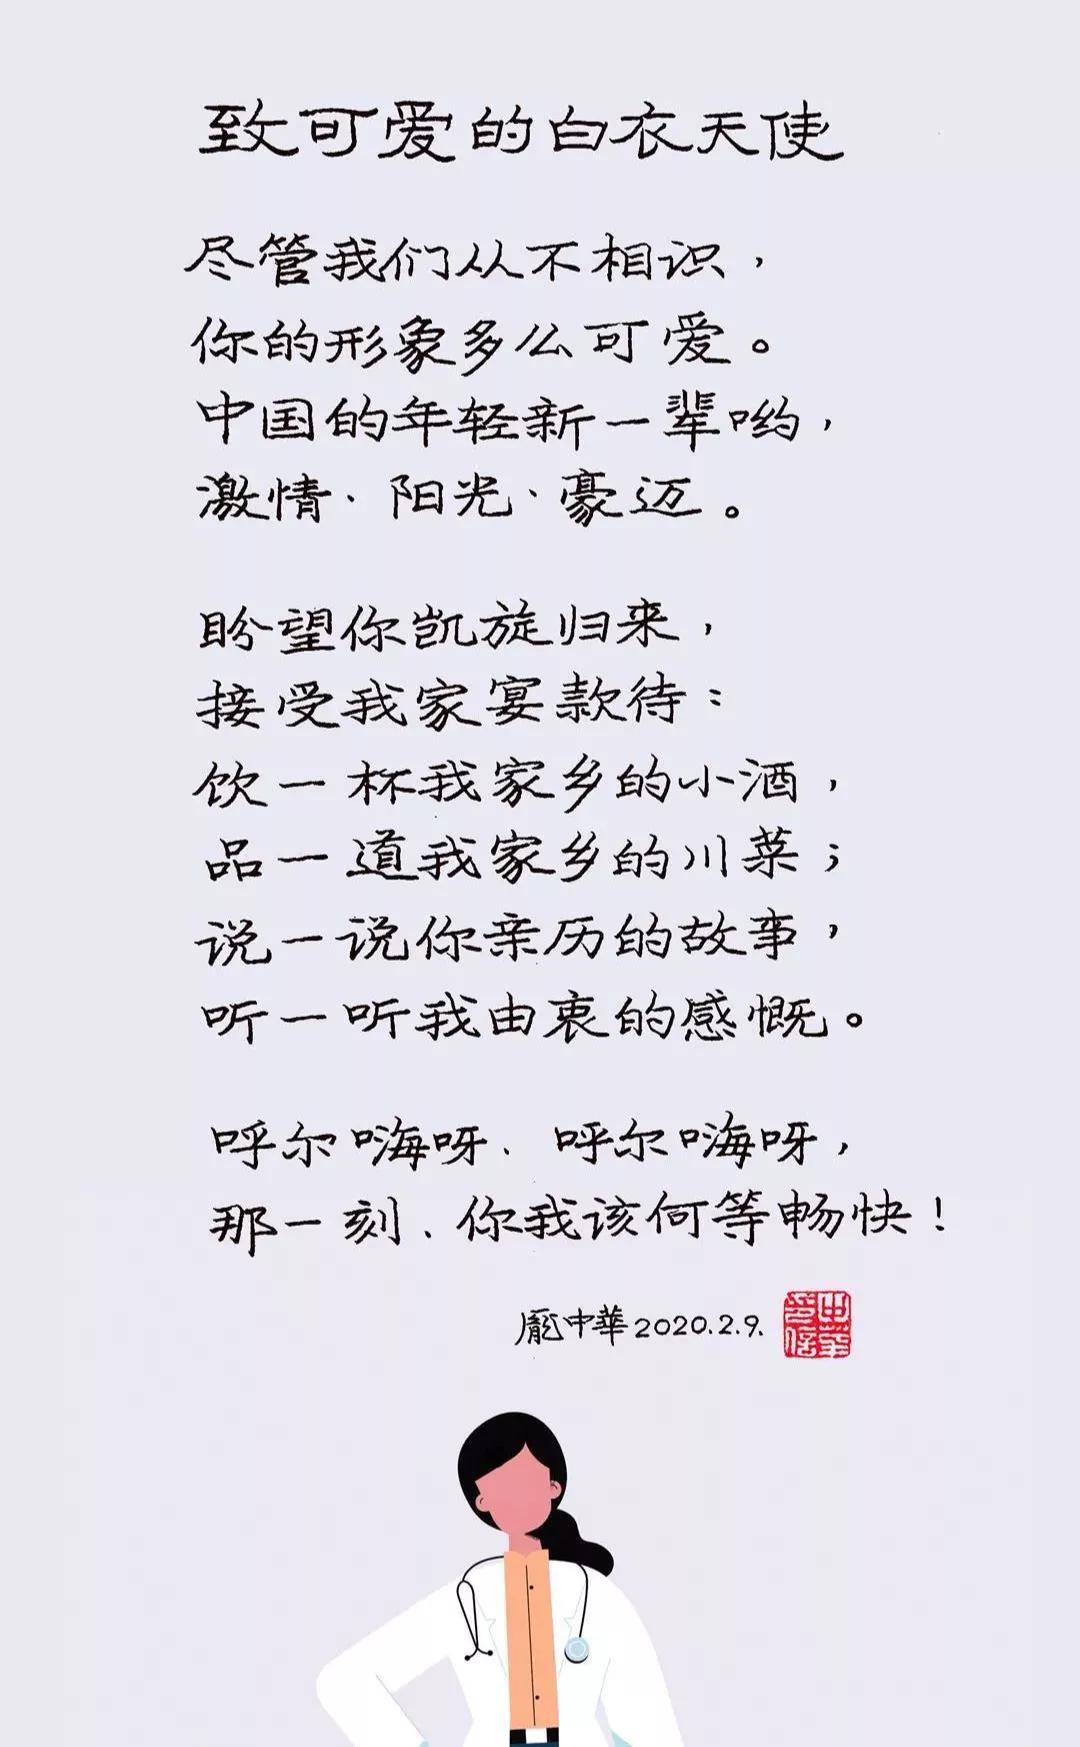 致可爱的白衣天使
尽管我们从不相识，
你的形象多么可爱。
中国的年轻新一辈哟，
激情·阳光·豪迈。
盼望你凯旋归来，
接受我家宴款待：
饮一杯我家乡的小酒，
品一道我家乡的川菜；
说一说你亲历的故事，
听一听我由衷的感慨。
呼尔嗨呀、呼尔嗨呀，
那一刻、你我该何等畅快！
龐中華2020.2.9.
中华
印信